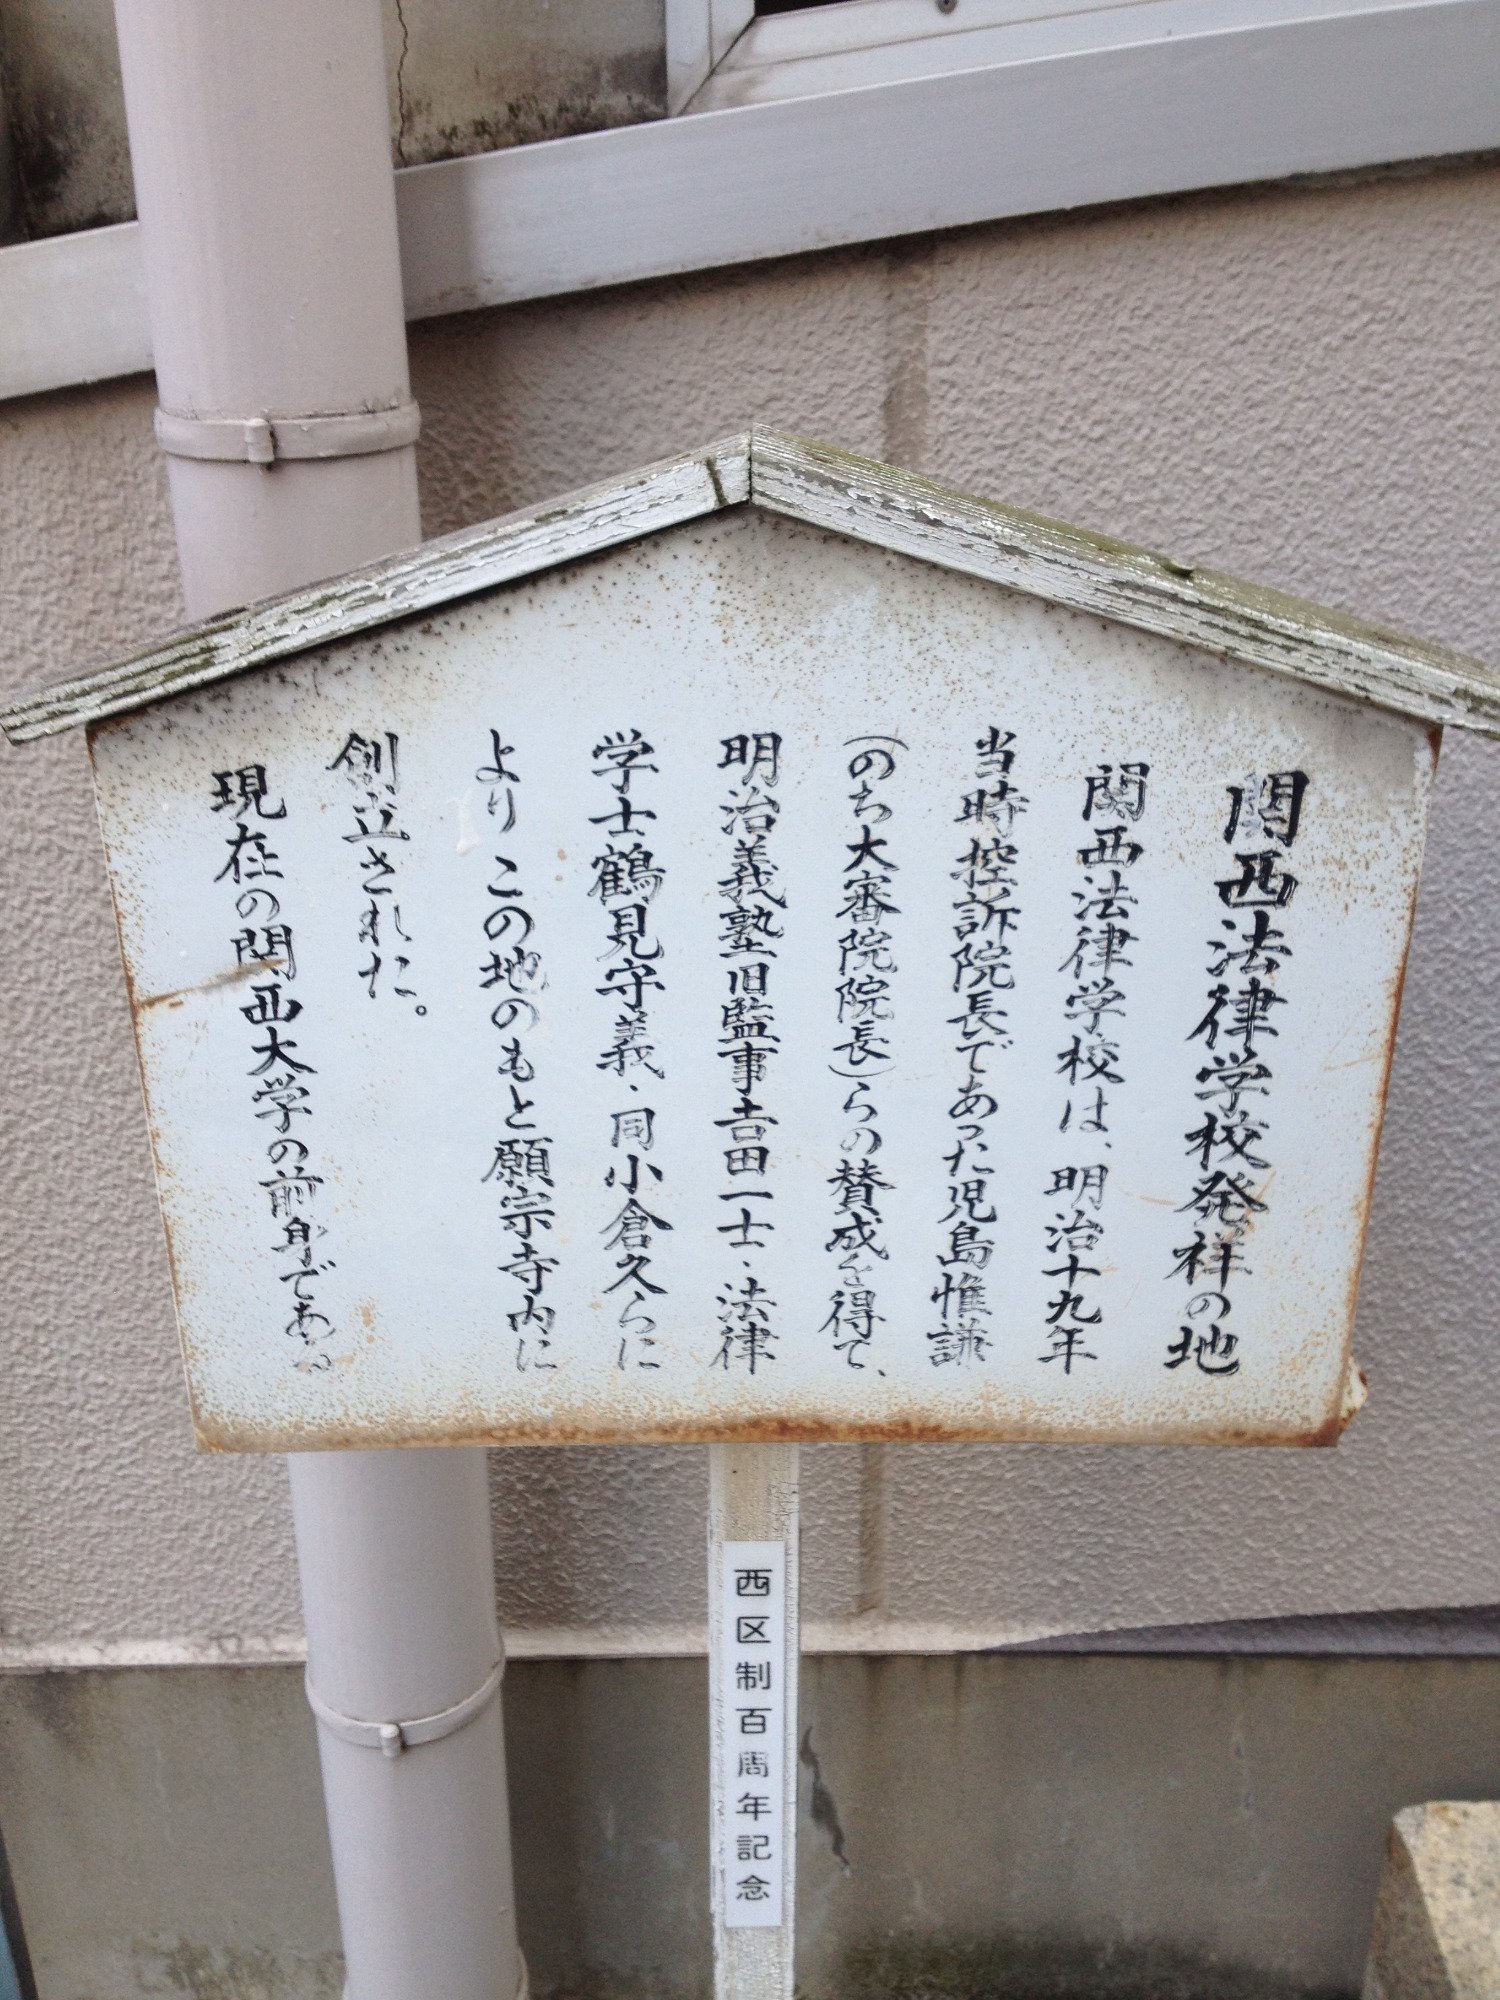 関西法律学校発祥の地
関西法律学校は、明治十九年
当時控訴院長であった児島惟謙
(のち大審院院長)らの賛成を得て、
明治義塾旧監事吉田一士・法律
学士鶴見守義・同小倉久らに
より この地のもと願宗寺内に
創立された。
現在の関西大学の前身である
西区制百周年記念